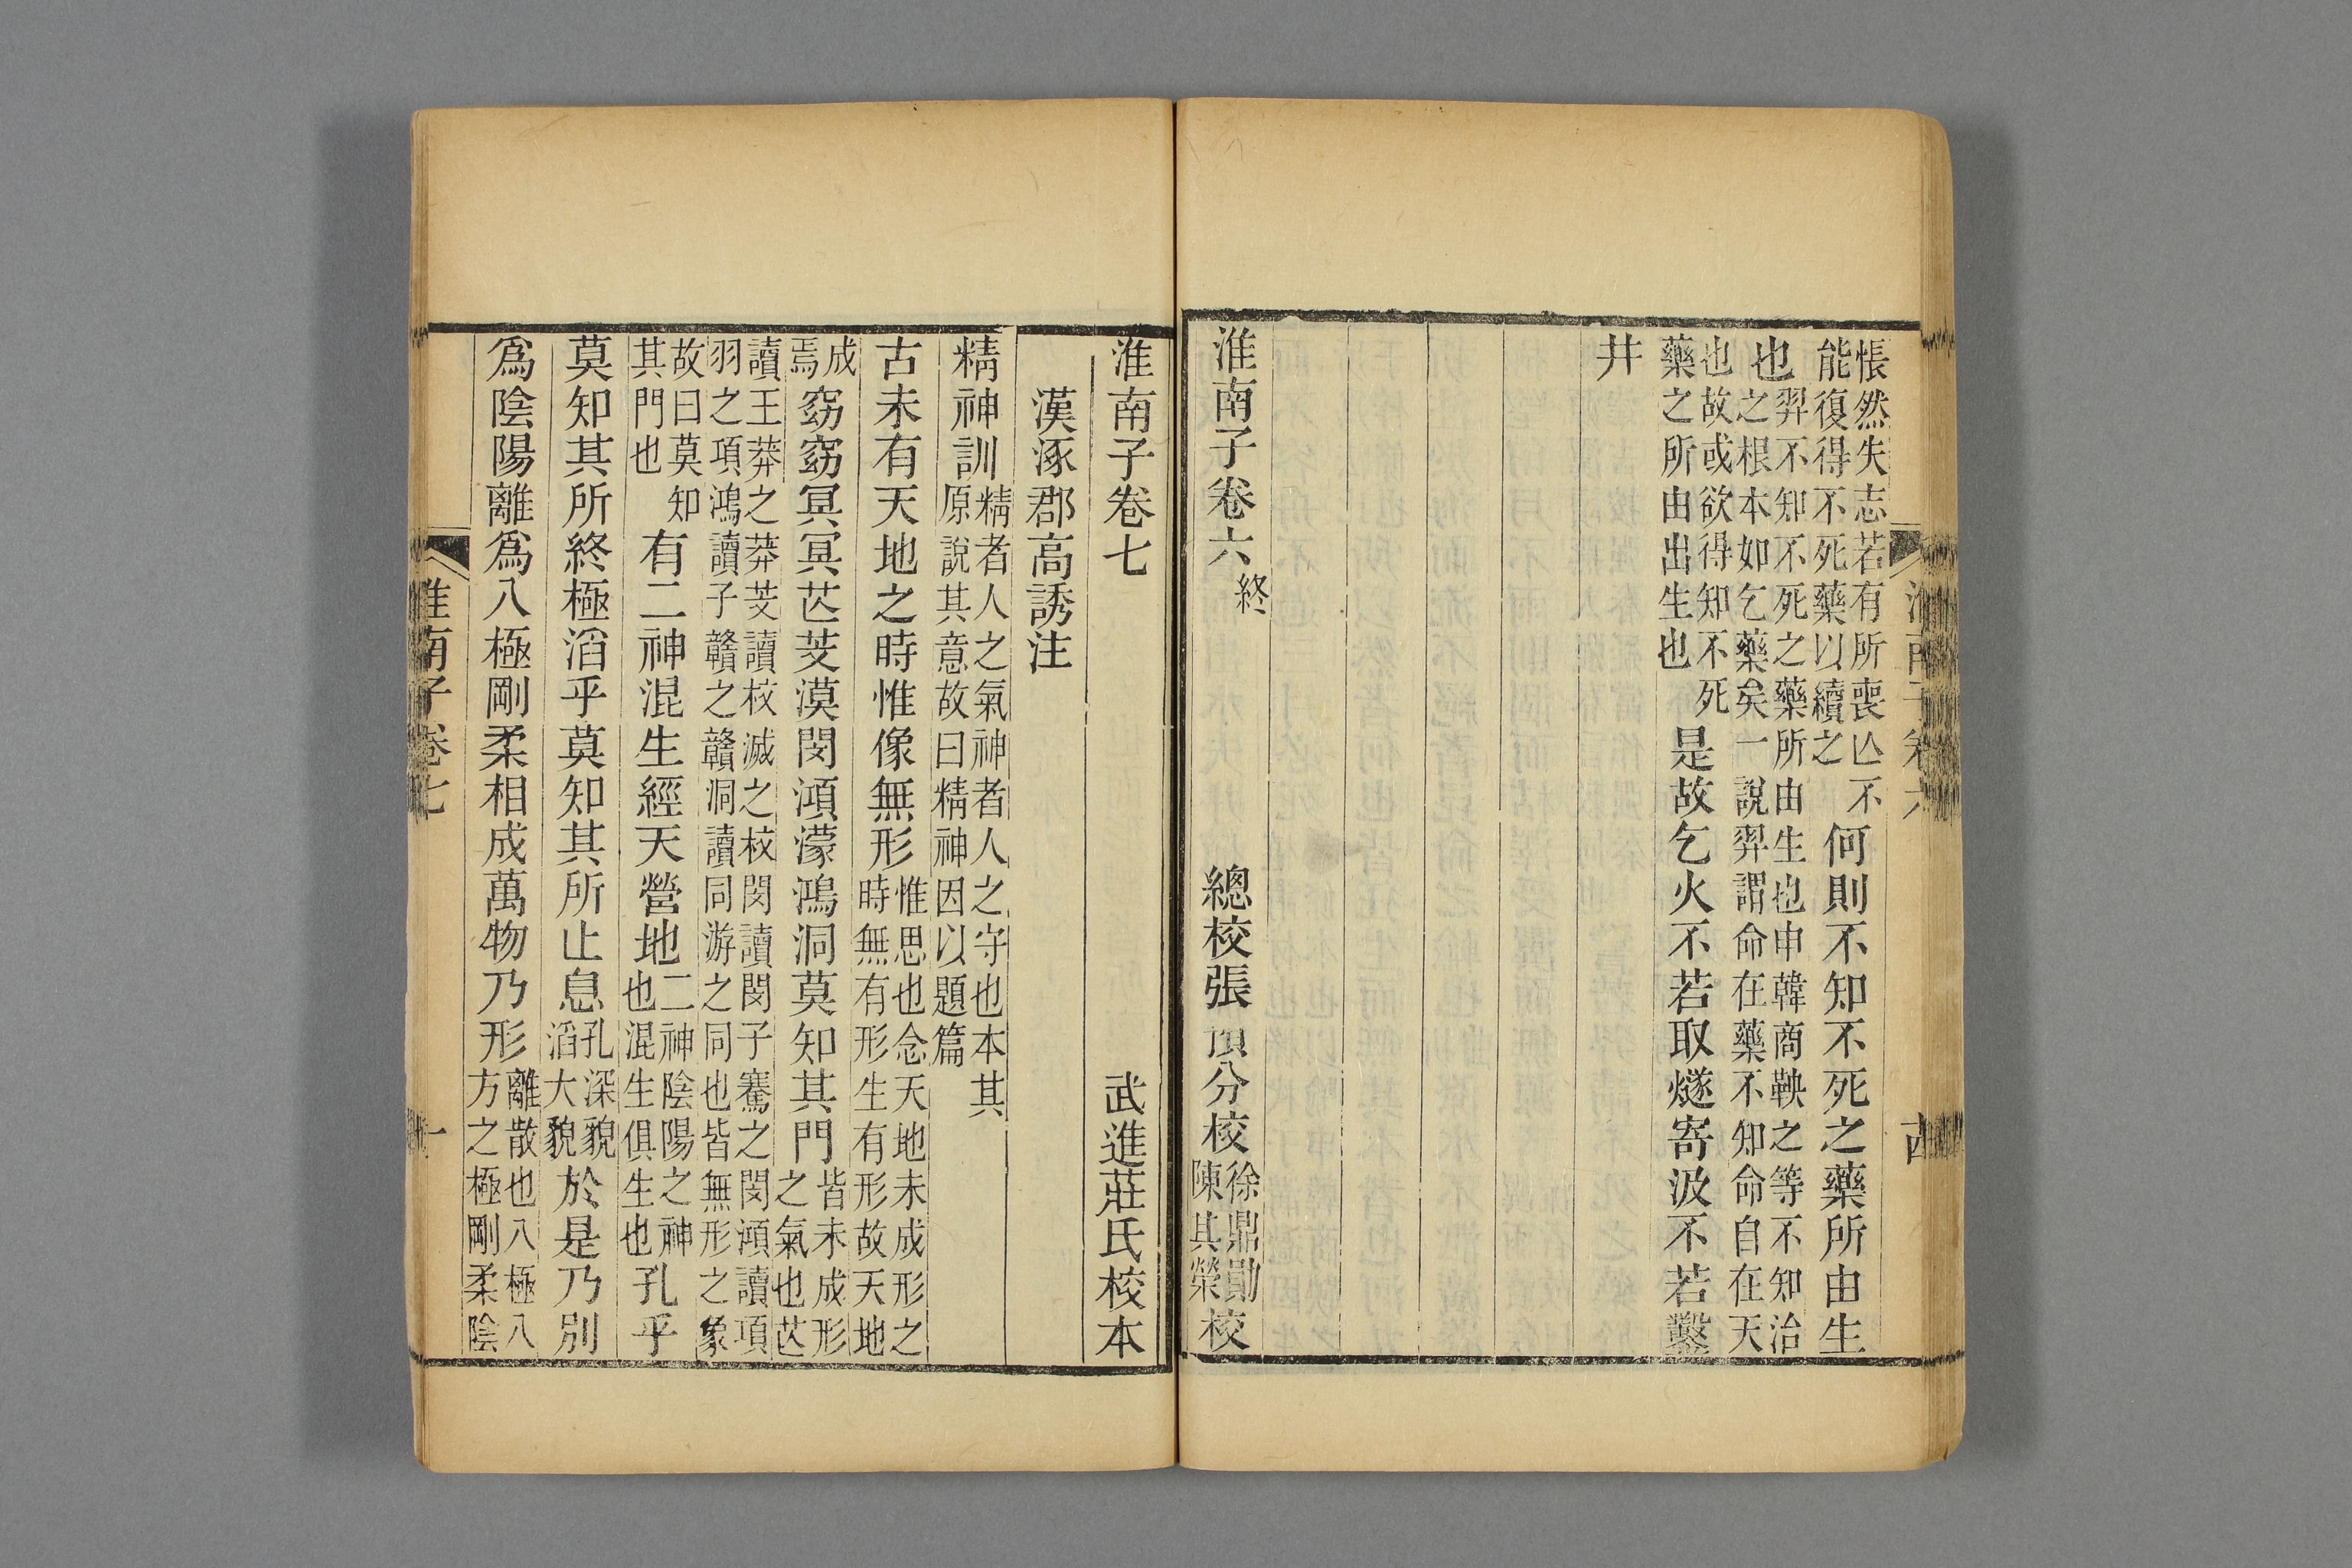 悵然失志若有所喪亾不
能復得不死藥以續之
何則不知不死之藥所由生
也
羿不知不死之藥所由生也申韓商鞅之等不知治
之根本如乞藥矣一說羿謂命在藥不知命自在天
也故或欲得知不死
藥之所由出生也
是故乞火不若取燧寄汲不若鑿
井
淮南子卷六
終
總校張
分校
徐鼎勛
陳其榮
校
淮南子卷六
淮南子卷七
武進莊氏校本
漢涿郡高誘注
精神訓
精者人之氣神者人之守也本其
原說其意故曰精神因以題篇
古未有天地之時惟像無形
惟思也念天地未成形之
時無有形生有形故天地
成
焉
窈窈冥冥芒芠漠閔澒濛鴻洞莫知其門
皆未成形
之氣也芒
讀王莽之莽芠讀校滅之校閔讀閔子騫之閔澒讀項
羽之項鴻讀子贛之贛洞讀同游之同也皆無形之象
故曰莫知
其門也
有二神混生經天營地
二神陰陽之神
也混生俱生也
孔乎
莫知其所終極滔乎莫知其所止息
孔深貌
滔大貌
於是乃別
爲陰陽離爲八極剛柔相成萬物乃形
離散也八極八
方之極剛柔陰
淮南子卷七
一